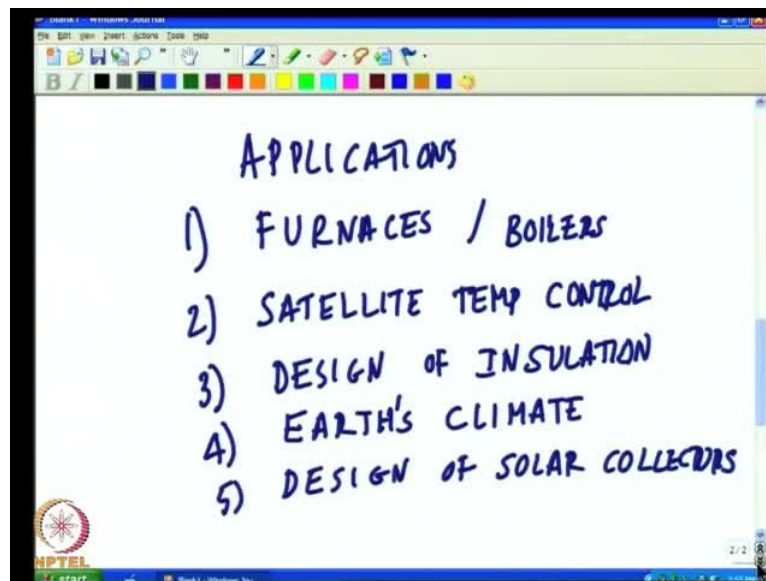 Blank1 - Windows Journal
File Edit View Insert Actions Tools Help
B I
APPLICATIONS
1) FURNACES / BOILERS
2) SATELLITE TEMP CONTROL
3) DESIGN OF INSULATION
4) EARTH'S CLIMATE
5) DESIGN OF SOLAR COLLECTORS
NPTEL
2/2
start